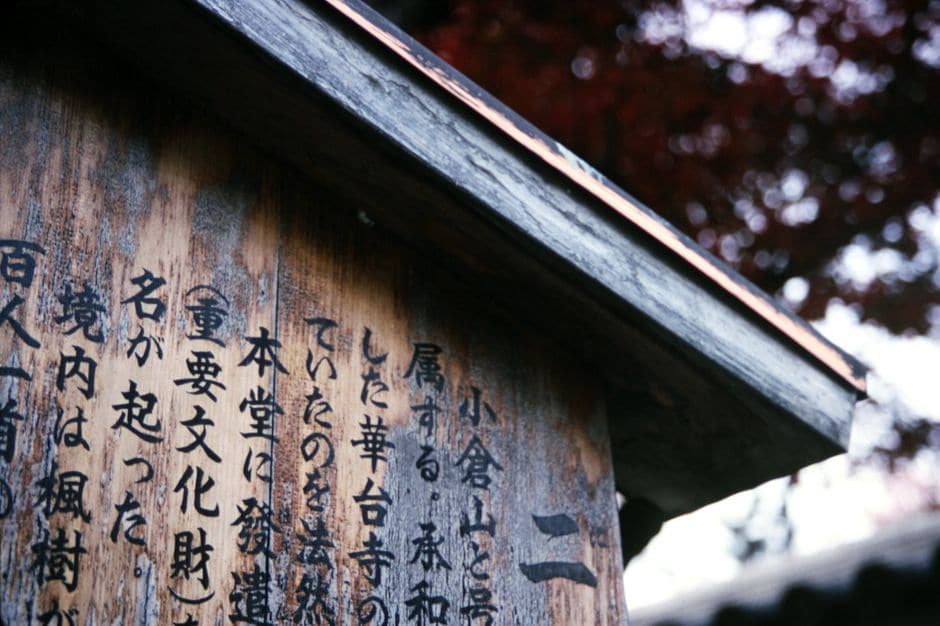 二
小倉山と号
属する。承和
した華台寺の
ていたのを法然
本堂に發遣
(重要文化財)
名が起った。
境内は楓樹が
百人一首の